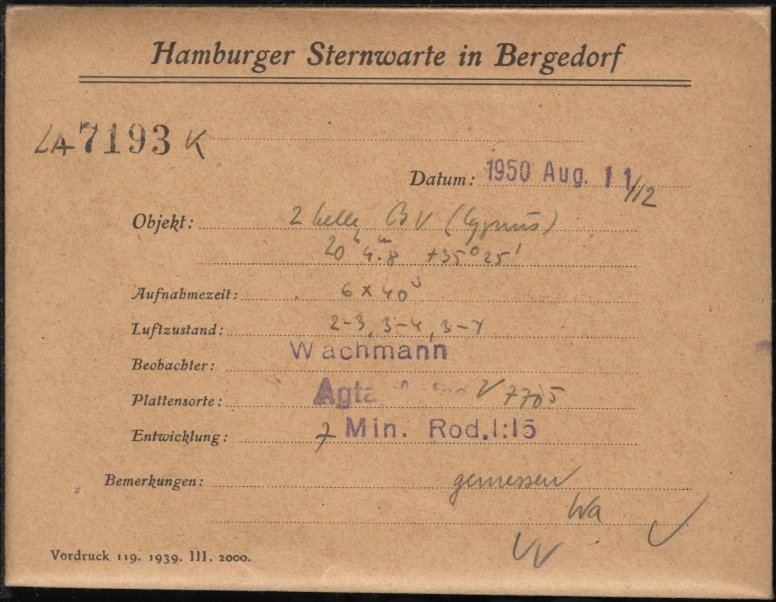 Hamburger Sternwarte in Bergedorf
LA 7193 K
Datum: 1950 Aug. 11/12
Objekt: 2 helle BV (Cygnus)
20ʰ 4ᵐ.8 +35° 25'
Aufnahmezeit: 6 x 40
Luftzustand: 2-3, 3-4, 3-4
Beobachter: Wachmann
Plattensorte: Agfa 7705
Entwicklung: 7 Min. Rod. 1:15
Bemerkungen: gemessen
Wa
Vordruck 119. 1939. III. 2000.